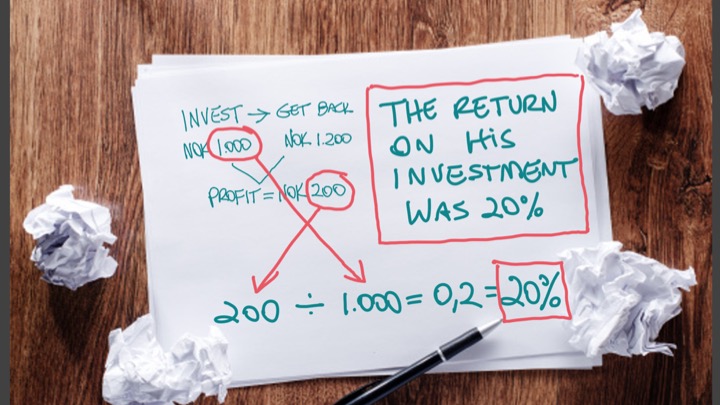 INVEST → GET BACK
NOK 1.000 NOK 1.200
PROFIT = NOK 200
THE RETURN
ON HIS
INVESTMENT
WAS 20%
200 ÷ 1.000 = 0,2 = 20%